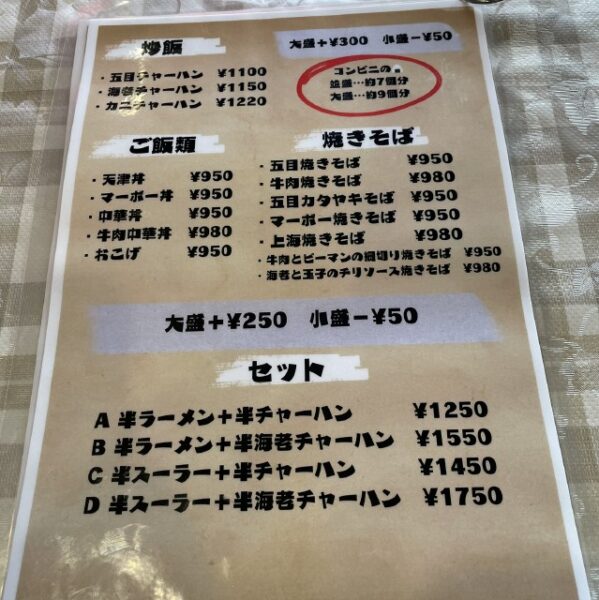 炒飯
大盛＋¥300 小盛－¥50
・五目チャーハン ¥1100
・海老チャーハン ¥1150
・カニチャーハン ¥1220
コンビニの
…約7個分
大盛…約9個分
ご飯類
・天津丼 ¥950
・マーボー丼 ¥950
・中華丼 ¥950
・牛肉中華丼 ¥980
・おこげ ¥950
焼きそば
・五目焼きそば ¥950
・牛肉焼きそば ¥980
・五目カタヤキそば ¥950
・マーボー焼きそば ¥950
・上海焼きそば ¥980
・牛肉とピーマンの細切り焼きそば ¥950
・海老と玉子のチリソース焼きそば ¥980
大盛＋¥250 小盛－¥50
セット
A 半ラーメン＋半チャーハン ¥1250
B 半ラーメン＋半海老チャーハン ¥1550
C 半スーラー＋半チャーハン ¥1450
D 半スーラー＋半海老チャーハン ¥1750